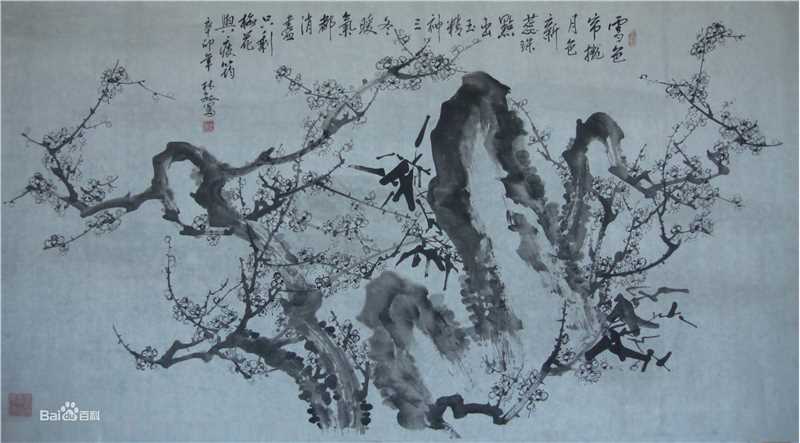 雪色
帘攏
月色
新
蕊珠
點
出
玉精
神
三
冬
暖
氣
都
消
盡
只剩
梅花
與筠
辛卯年 林寫
Bai百科